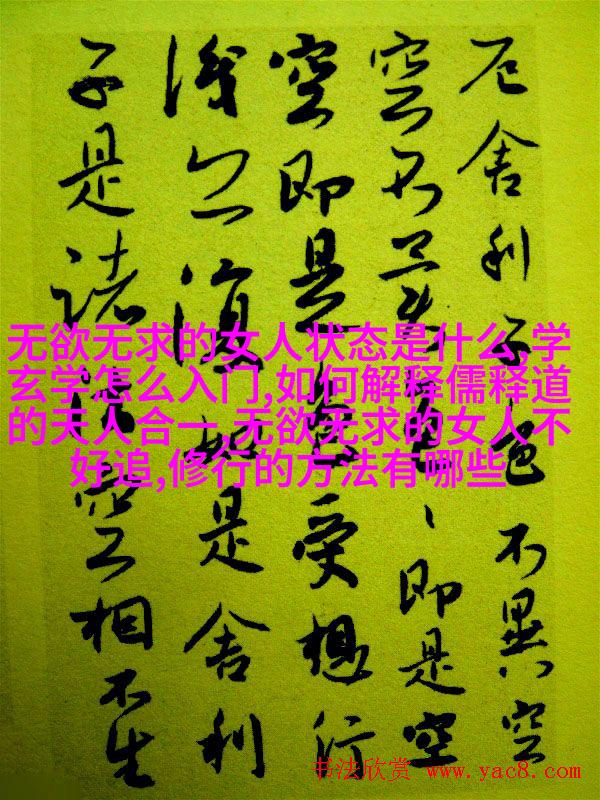 厄舍利子色不異空
空不異色、即是空
空即是色受想行
識亦復如是舍利
子是諸法空相不生
无欲无求的女人状态是什么,学
玄学怎么入门,如何解释儒释道
的天人合一,无欲无求的女人不
好追,修行的方法有哪些
书法欣赏 www.yac8.com